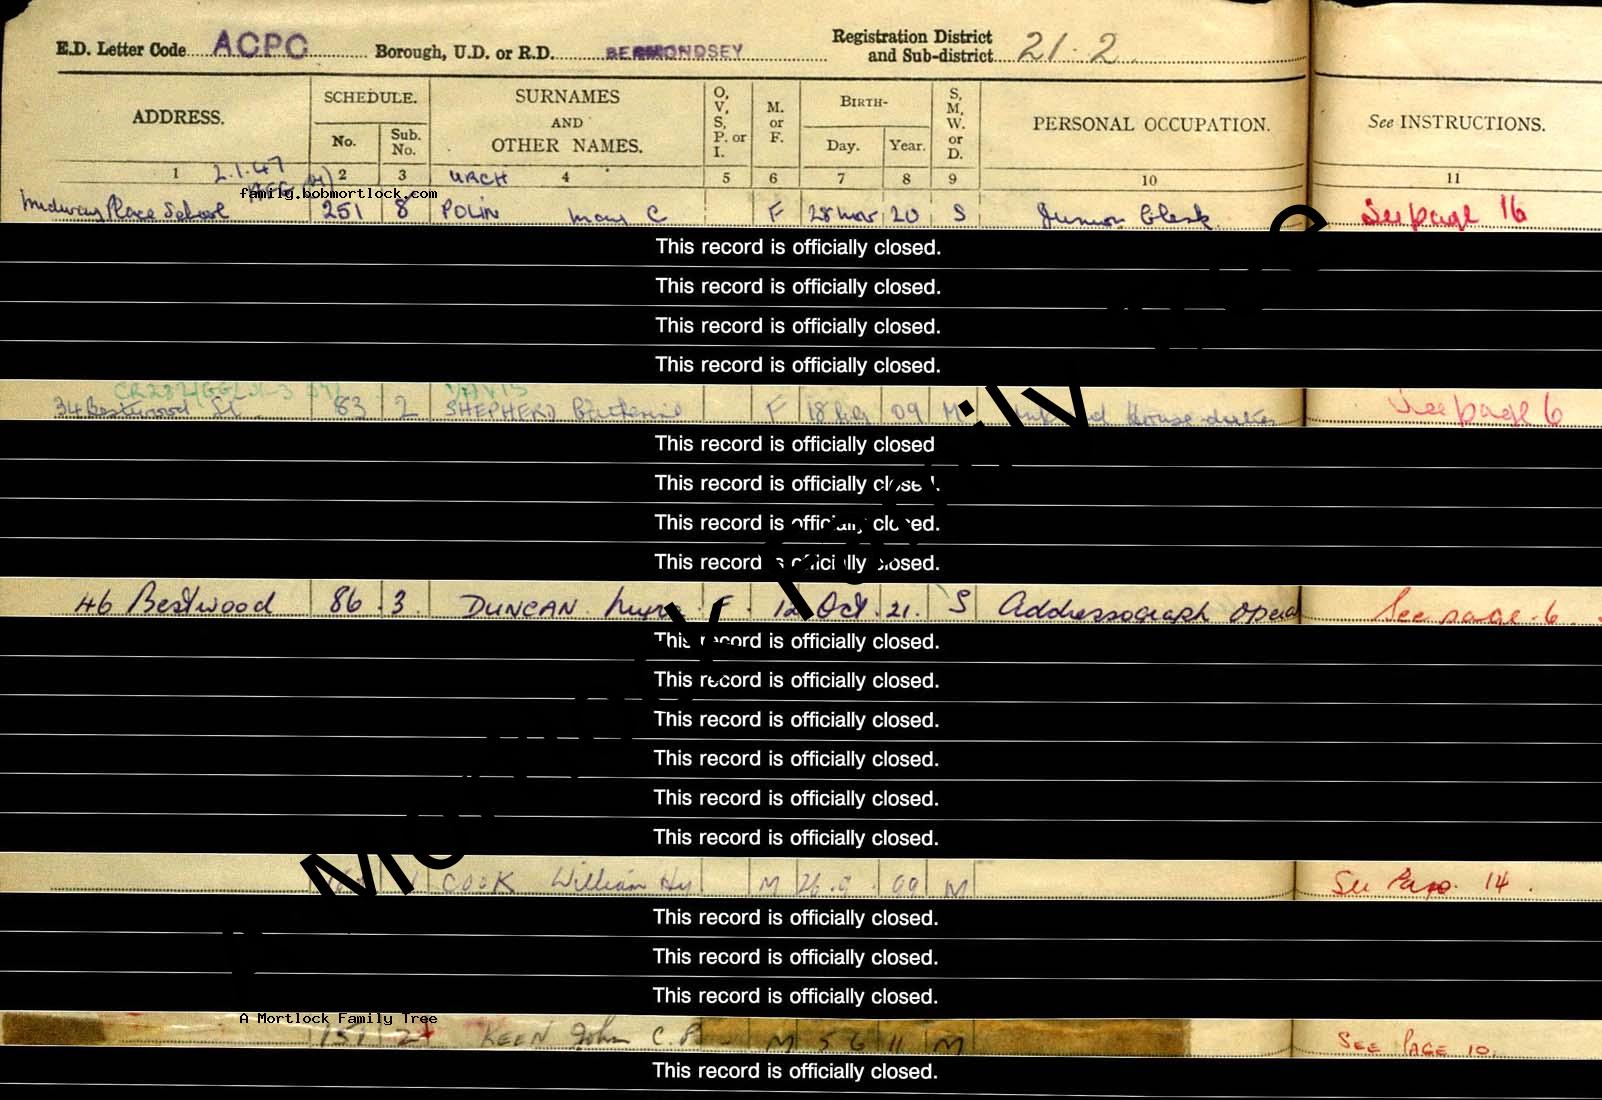 E.D. Letter Code ACPC Borough, U.D. or R.D. BERMONDSEY Registration District and Sub-district 21.2
ADDRESS. SCHEDULE. No. Sub. No. SURNAMES AND OTHER NAMES. O, V, S, P. or I. M. or F. BIRTH- Day. Year. S, M, W. or D. PERSONAL OCCUPATION. See INSTRUCTIONS.
1 2 3 4 5 6 7 8 9 10 11
2.1.47 URCH
family.bobmortlock.com
Midway Place School 251 8 POLIN Mary C F 28 Nov 20 S Junior Clerk See page 16
This record is officially closed.
This record is officially closed.
This record is officially closed.
This record is officially closed.
DAVIS
34 Bestwood St 83 2 SHEPHERD F 18 09 M House duties See page 6
This record is officially closed
This record is officially closed.
This record is officially closed.
This record is officially closed.
46 Bestwood 86 3 DUNCAN F. 12 Oct 21. S Addressograph Opera See page 6.
This record is officially closed.
This record is officially closed.
This record is officially closed.
This record is officially closed.
This record is officially closed.
This record is officially closed.
COOK William Hy M 26.9.09 M See Page 14.
This record is officially closed.
This record is officially closed.
This record is officially closed.
A Mortlock Family Tree
151 2 KEEN John C. P. M 5 6 11 M SEE PAGE 10.
This record is officially closed.
A Mortlock Family Tree